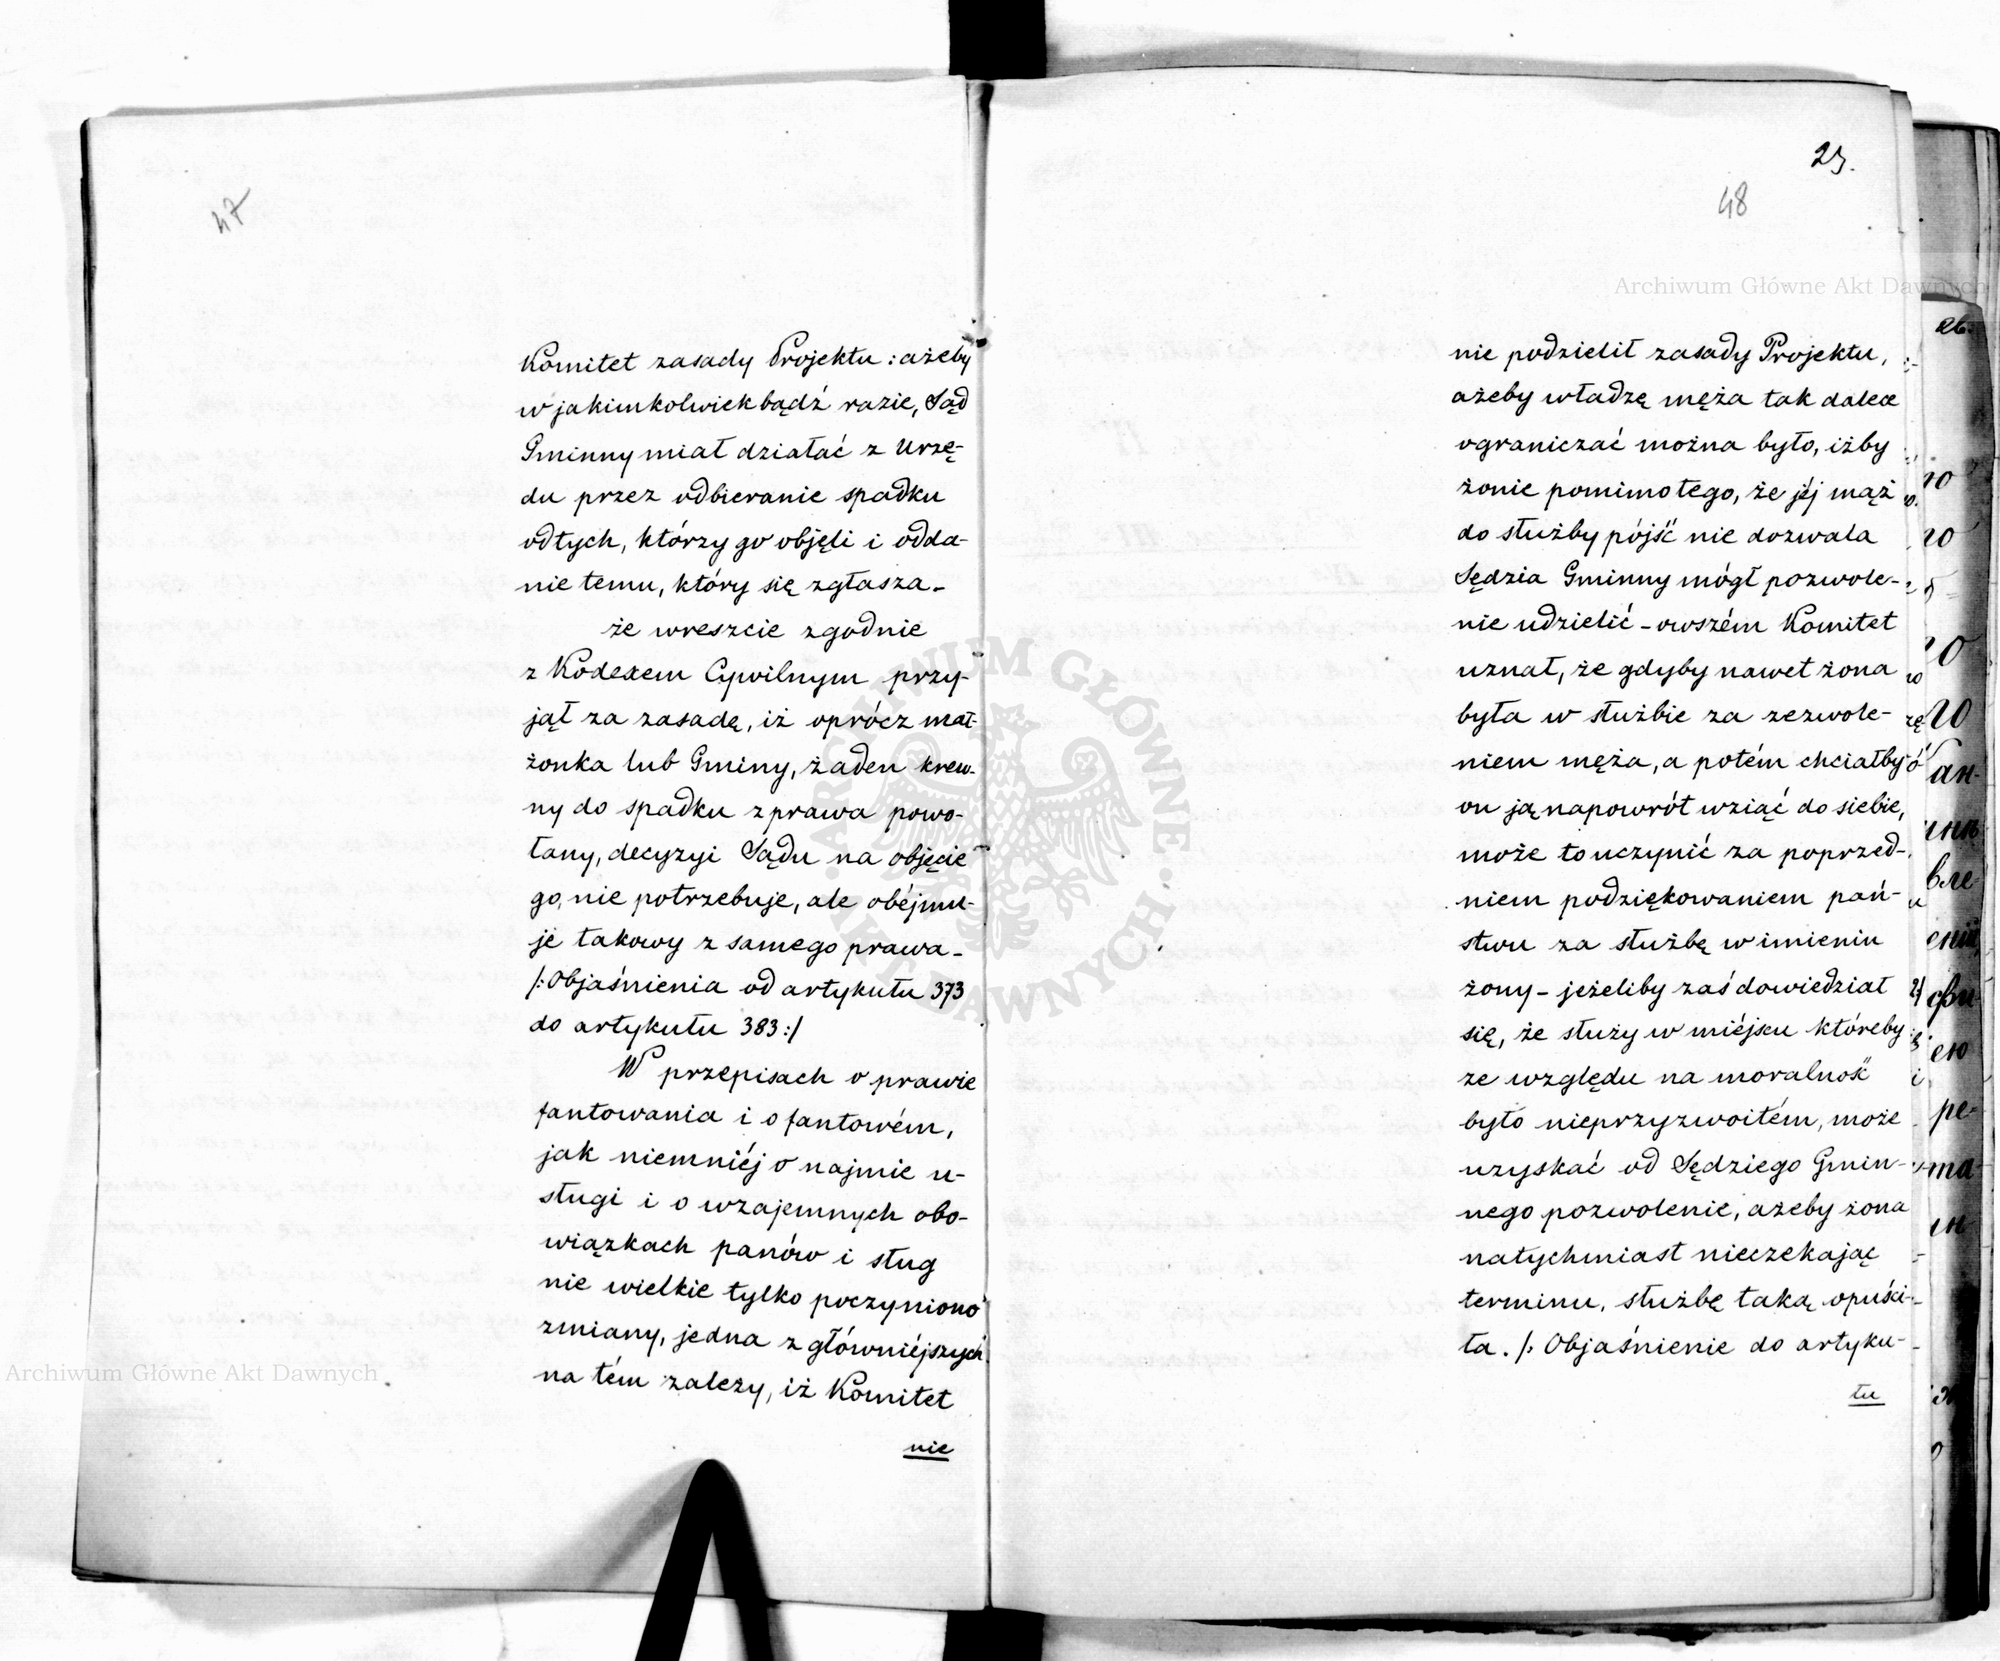 47
Komitet zasady Projektu: ażeby
w jakimkolwiekbądź razie, Sąd
Gminny miał działać z Urzę-
du przez odbieranie spadku
od tych, którzy go objęli i odda-
nie temu, który się zgłasza.
że wreszcie zgodnie
z Kodexem Cywilnym przy-
jął za zasadę, iż oprócz mał-
żonka lub Gminy, żaden krew-
ny do spadku z prawa powo-
łany, decyzyi Sądu na objęcie
go, nie potrzebuje, ale obéjmu-
je takowy z samego prawa.
/: Objaśnienia od artykułu 373
do artykułu 383:/
W przepisach o prawie
fantowania i o fantowém,
jak niemniéj o najmie u-
sługi i o wzajemnych obo-
wiązkach panów i sług
nie wielkie tylko poczyniono
zmiany, jedna z główniéjszych
na tém zależy, iż Komitet
nie
23.
48
nie podzielił zasady Projektu,
ażeby władzę męża tak dalece
ograniczać można było, iżby
żonie pomimo tego, że jéj mąż
do służby pójść nie dozwala
Sędzia Gminny mógł pozwole-
nie udzielić - owszém Komitet
uznał, że gdyby nawet żona
była w służbie za zezwole-
niem męża, a potém chciałby
on ją napowrót wziąć do siebie,
może to uczynić za poprzed-
niem podziękowaniem pań-
stwu za służbę w imieniu
żony - jeżeliby zaś dowiedział
się, że służy w miéjscu któreby
ze względu na moralność
było nieprzyzwoitém, może
uzyskać od Sędziego Gmin-
nego pozwolenie, ażeby żona
natychmiast nieczekając
terminu, służbę taką opuści-
ła. /: Objaśnienie do artyku-
łu
Archiwum Główne Akt Dawnych
Archiwum Główne Akt Dawnych
ARCHIWUM GŁÓWNE AKT DAWNYCH